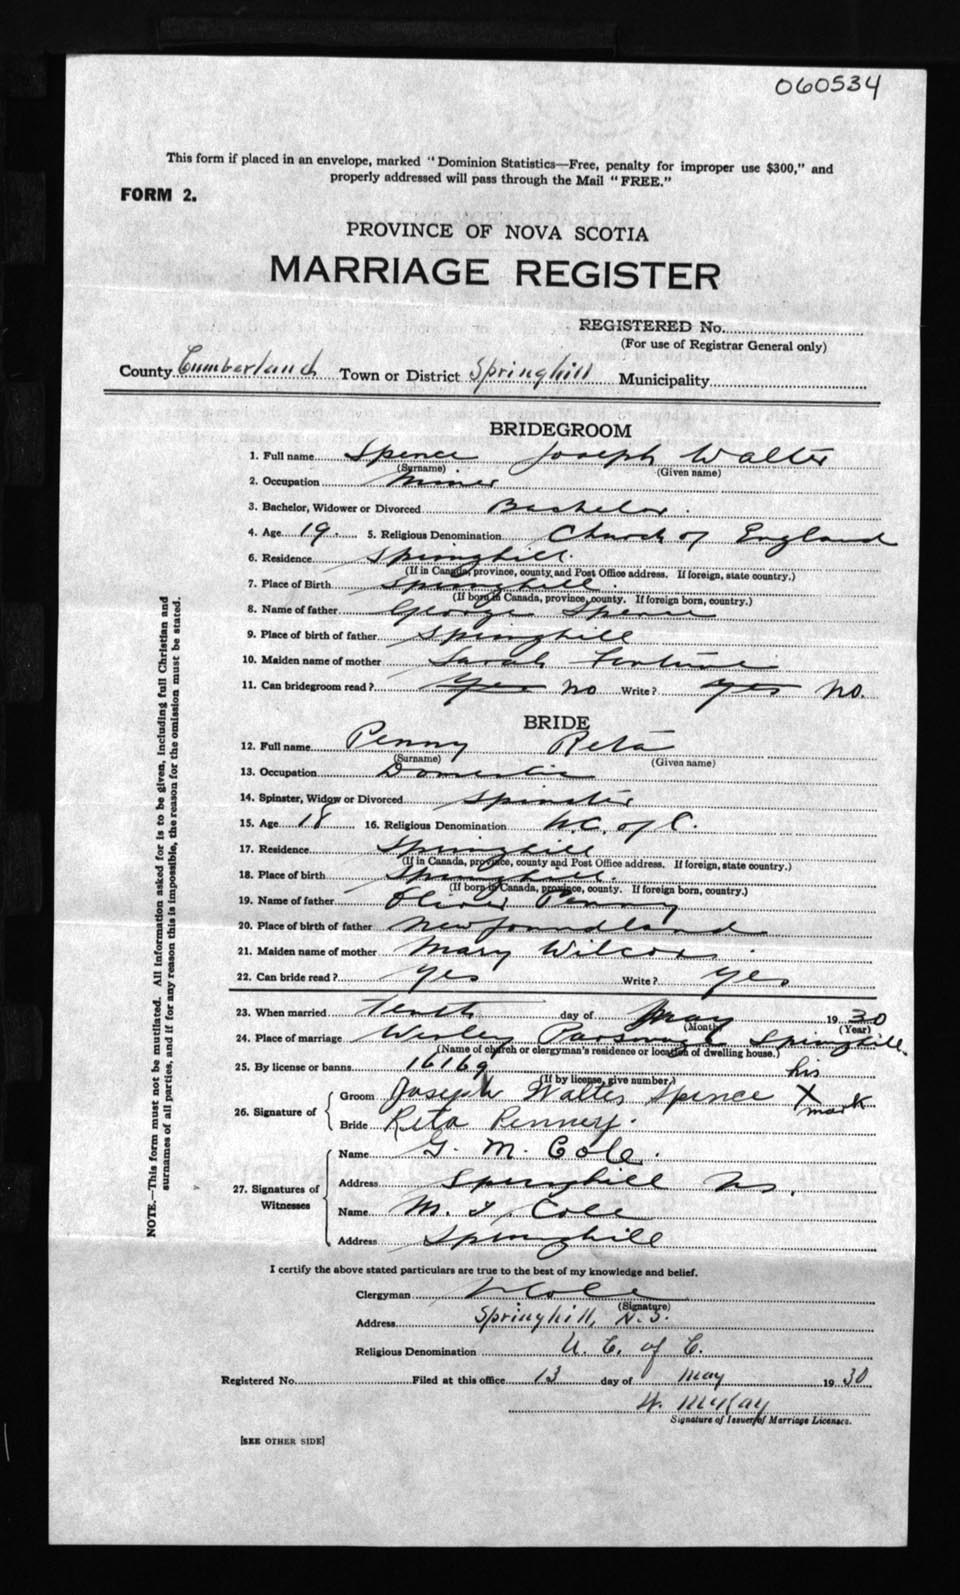 060534
This form if placed in an envelope, marked "Dominion Statistics—Free, penalty for improper use $300," and
properly addressed will pass through the Mail "FREE."
FORM 2.
PROVINCE OF NOVA SCOTIA
MARRIAGE REGISTER
REGISTERED No.
(For use of Registrar General only)
County Cumberland Town or District Springhill Municipality
BRIDEGROOM
1. Full name Spence Joseph Walter
(Surname) (Given name)
2. Occupation Miner
3. Bachelor, Widower or Divorced Bachelor.
4. Age 19. 5. Religious Denomination Church of England
6. Residence Springhill.
(If in Canada, province, county and Post Office address. If foreign, state country.)
7. Place of Birth Springhill
(If born in Canada, province, county. If foreign born, country.)
8. Name of father George Spence
9. Place of birth of father Springhill
10. Maiden name of mother Sarah Fortune
11. Can bridegroom read? Yes No Write? Yes No.
BRIDE
12. Full name Penny Reta
(Surname) (Given name)
13. Occupation Domestic
14. Spinster, Widow or Divorced Spinster
15. Age 18 16. Religious Denomination U.C. of C.
17. Residence Springhill
(If in Canada, province, county and Post Office address. If foreign, state country.)
18. Place of birth Springhill.
(If born in Canada, province, county. If foreign born, country.)
19. Name of father Oliver Penny
20. Place of birth of father Newfoundland
21. Maiden name of mother Mary Wilcox
22. Can bride read? Yes Write? Yes
23. When married Tenth day of May 1930
(Month) (Year)
24. Place of marriage Wesley Parsonage Springhill.
(Name of church or clergyman's residence or location of dwelling house.)
25. By license or banns 16169 his
(If by license, give number.)
26. Signature of { Groom Joseph Walter Spence X mark
Bride Reta Penney.
27. Signatures of Witnesses { Name G. M. Cole.
Address Springhill Ns.
Name M. I. Cole
Address Springhill
I certify the above stated particulars are true to the best of my knowledge and belief.
Clergyman Cole
(Signature)
Address Springhill, N.S.
Religious Denomination U. C. of C.
Registered No. Filed at this office 13 day of May 1930
W. McKay
Signature of Issuer of Marriage Licenses.
[SEE OTHER SIDE]
NOTE.—This form must not be mutilated. All information asked for is to be given, including full Christian and
surnames of all parties, and if for any reason this is impossible, the reason for the omission must be stated.